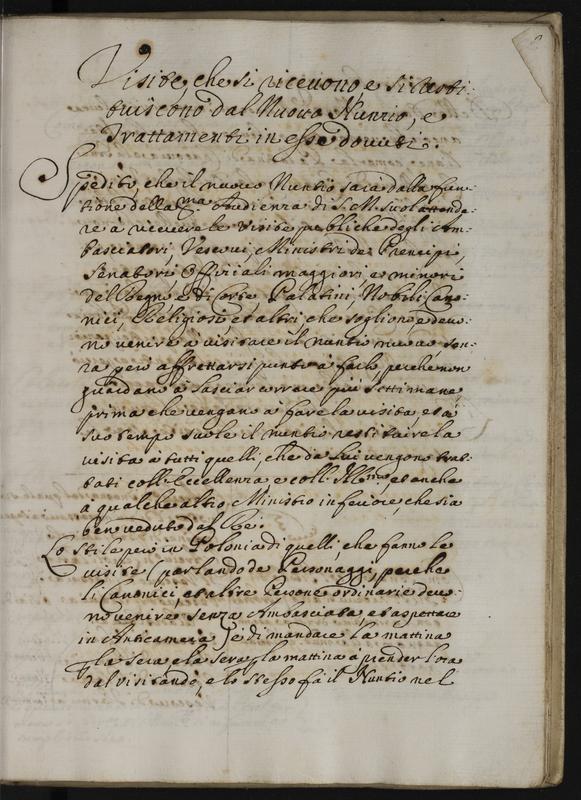 Visite, che si ricevono, e si resti-
tuiscono dal Nuovo Nunzio, e
Trattamenti in esse dovuti.
Spedito, che il nuovo Nuntio sarà dalla fun-
tione della ma Audienza di S. M. suol attende-
re à ricevere le visite publiche degli Am-
basciatori, Vescovi, Ministri de Prencipi,
Senatori Officiali maggiori, e minori
del Regno, e di Corte Palatini, Nobili Cano-
nici, Religiosi, et altri che sogliono, e devo-
no venire à visitare il nuntio nuovo sen-
za però affrettarsi punto à farlo, perché non
guardano à lasciar correre più settimane
prima che vengano à fare la visita, et à
suo tempo suole il nuntio restituire la
visita à tutti quelli, che da lui vengono trat-
tati coll'Eccellenza, e coll'Illmo, et anche
à qualche altro Ministro inferiore, che sia
ben veduto dal Rè.
Lo stile però in Polonia di quelli che fanno le
visite (parlando de Personaggi, perche
li Canonici, et altre Persone ordinarie devo-
no venire senza Ambasciata, et aspettare
in Anticamera) é di mandare la mattina
p la sera, e la sera p la mattina à prender l'ora
dal visitando, e lo stesso fà il Nuntio nel